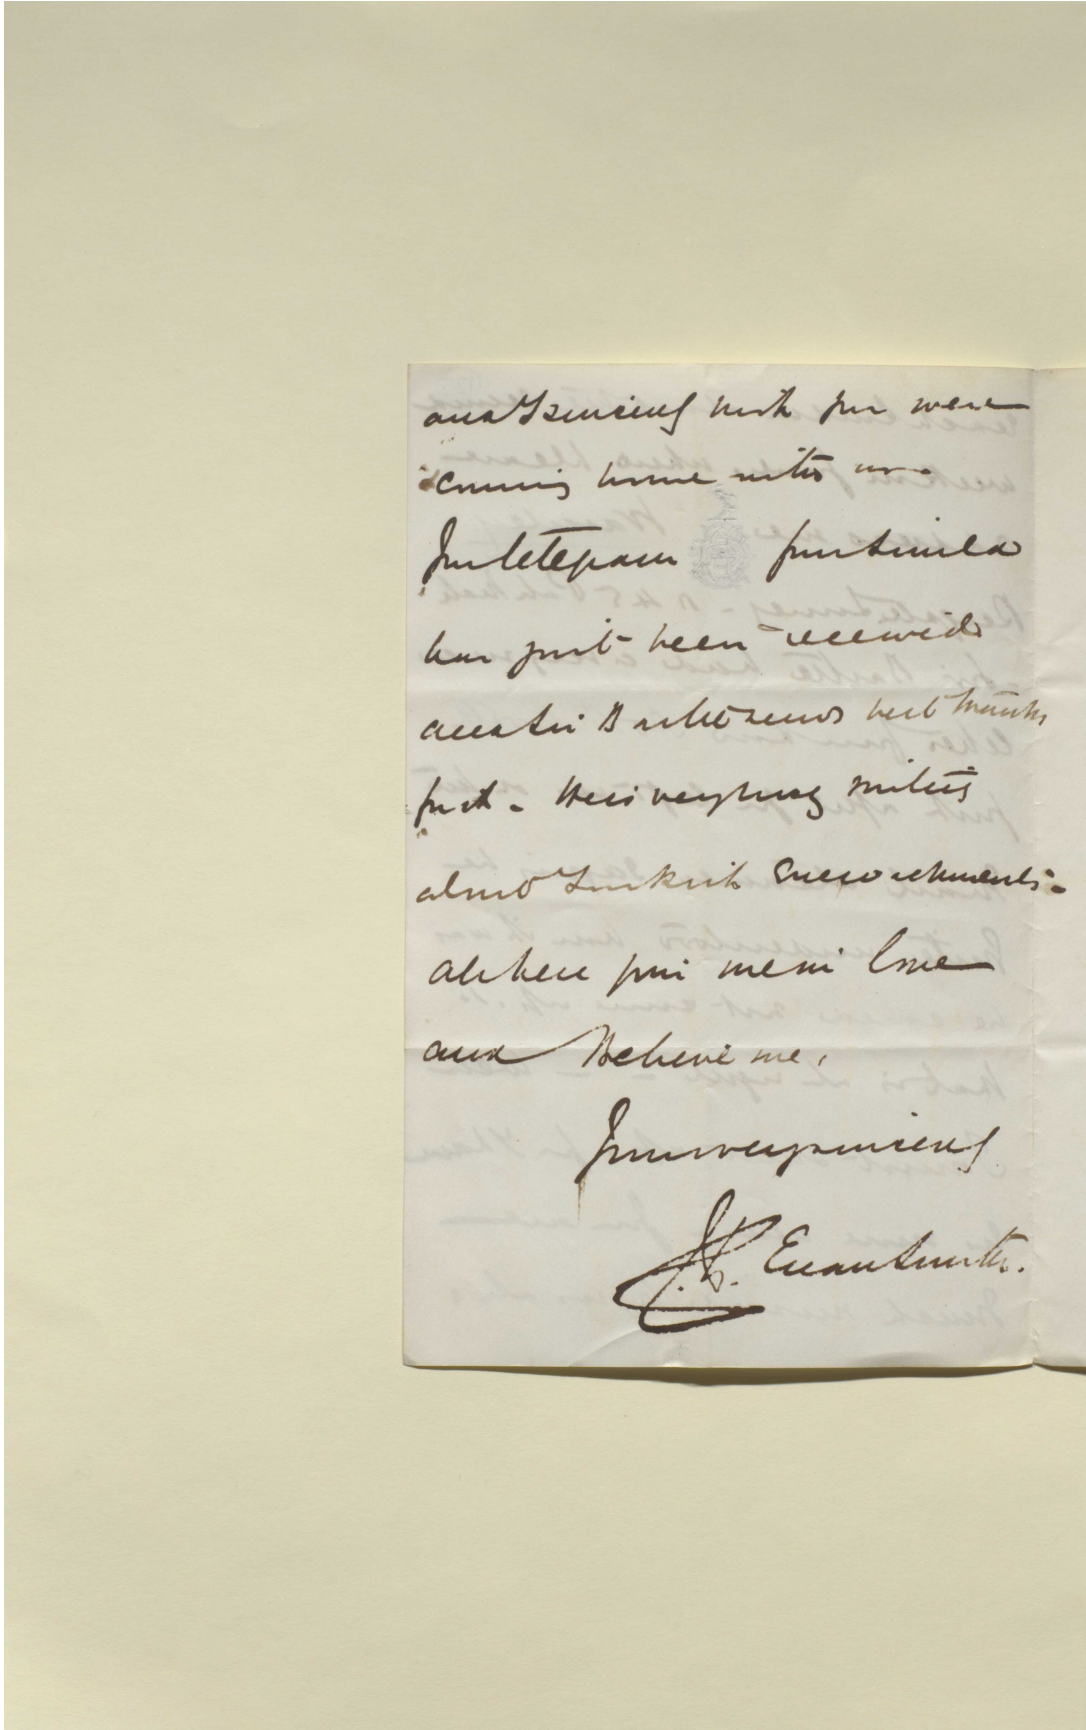 and I sincerely wish you were
coming home with us.
Your telegram from Simla
has just been received
and Sir Bartle sends best thanks
for it. He is very busy writing
about Turkish encroachments.
all here join me in love
and Believe me,
Yours very sincerely
C. B. Euan Smith.